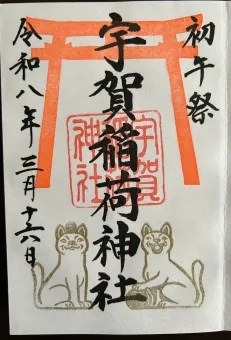 初午祭
宇賀稲荷神社
宇賀稲荷神社
令和八年三月十六日